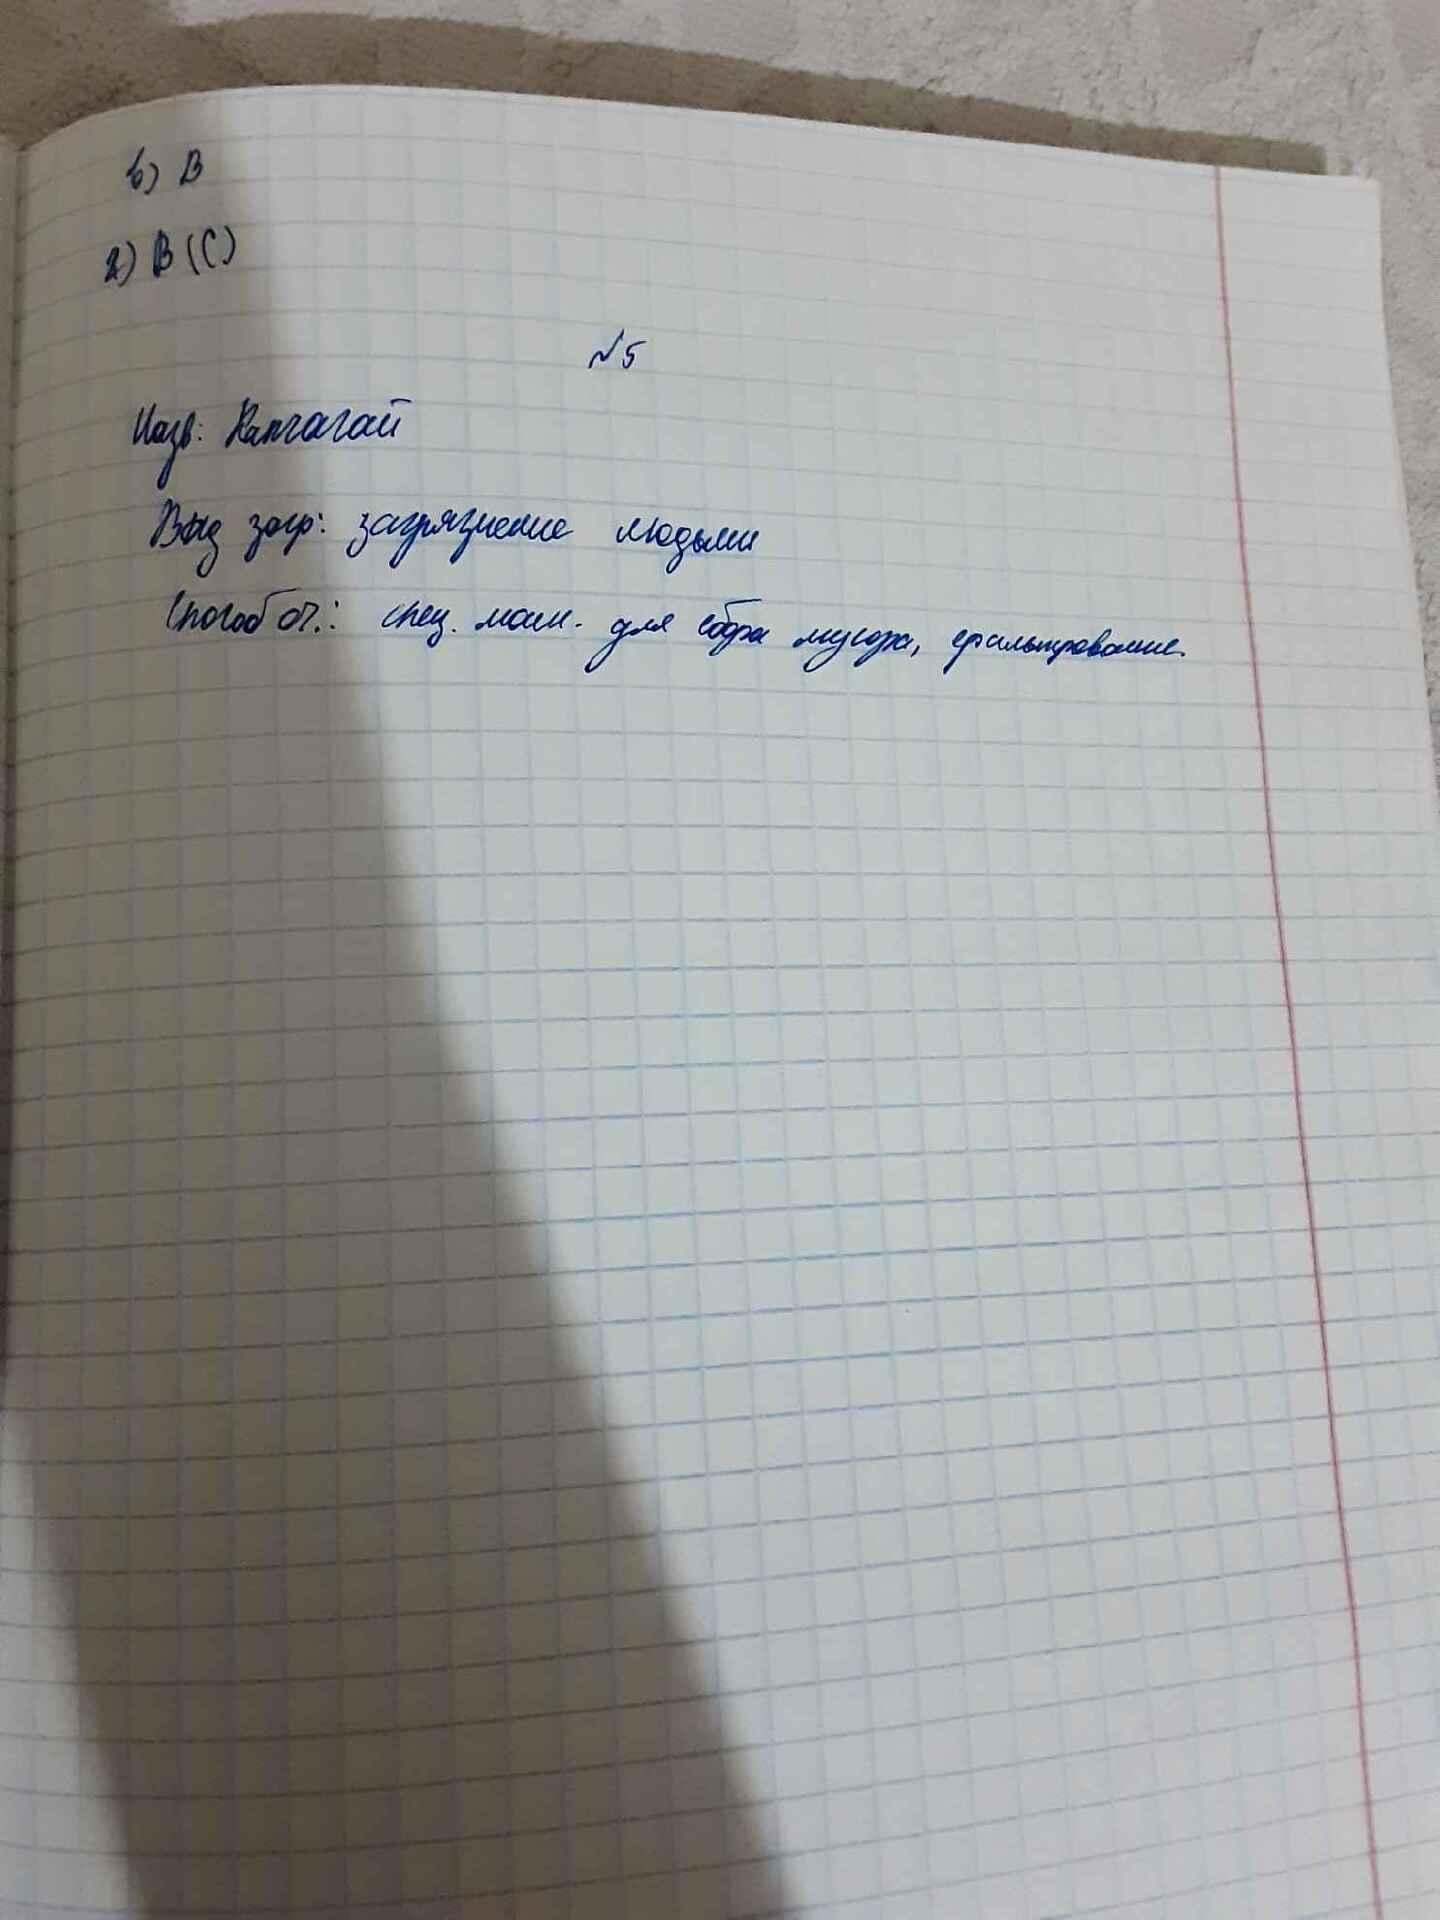 в) В
г) В (С)
№5
Назв: Капчагай
Вид загр: загрязнение людьми
Способ оч.: спец. маш. для сбора мусора, фильтрование.